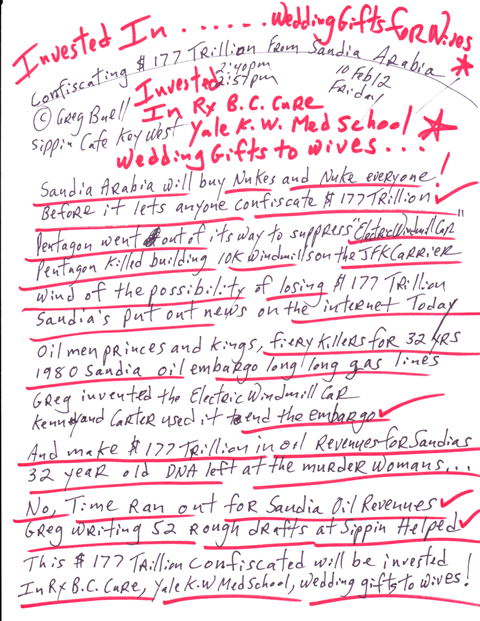 Invested In...... Wedding Gifts for Wives
Confiscating $177 Trillion from Saudia Arabia
2:40pm
Invested 2:57pm 10 Feb 12
© Greg Buell In Rx B.C. Cure Friday
Sippin Cafe Key West Yale K.W. Med School
Wedding Gifts to Wives...
Saudia Arabia will buy Nukes and Nuke everyone!
Before it lets anyone confiscate $177 Trillion
Pentagon went out of its way to suppress "Electric Windmill Car"
Pentagon Killed building 10K Windmills on the JFK Carrier
Wind of the possibility of losing $177 Trillion
Saudia's put out news on the internet Today
Oil men princes and kings, fiery killers for 32 yrs
1980 Saudia oil embargo long long gas lines
Greg invented the Electric Windmill Car
Kennedy and Carter used it to end the embargo
And make $177 Trillion in oil Revenues for Saudias
32 year old DNA left at the murder womans...
No, Time Ran out for Saudia Oil Revenues
Greg writing 52 rough drafts at Sippin Helped
This $177 Trillion confiscated will be invested
In Rx B.C. Cure, Yale K.W Med School, wedding gifts to wives!